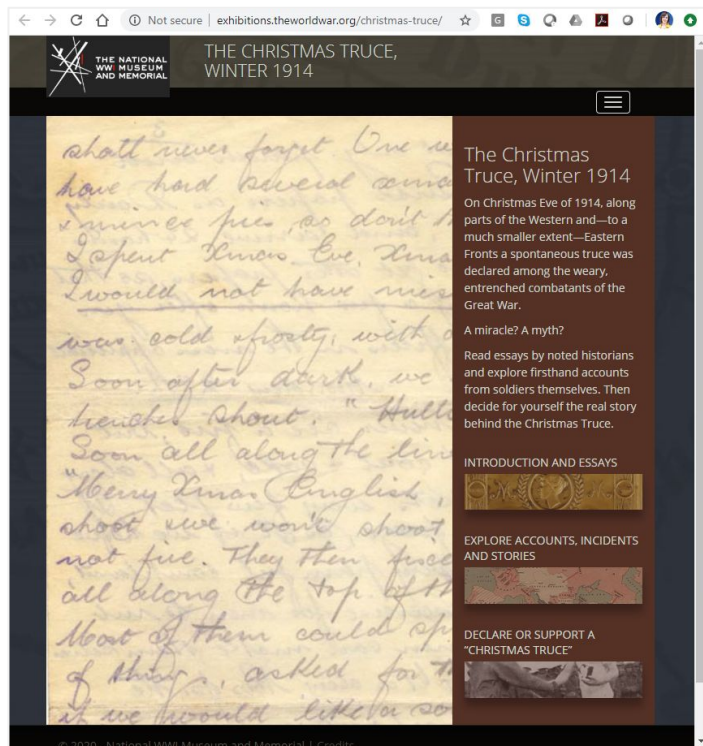 Not secure | exhibitions.theworldwar.org/christmas-truce/
THE NATIONAL
WWI MUSEUM
AND MEMORIAL
THE CHRISTMAS TRUCE,
WINTER 1914
shall never forget. One
have had several
mince pies, so don't
I spent Xmas Eve, Xmas
I would not have
was cold & frosty, with
Soon after dark, we
trenches shout. "Hullo
Soon all along the line
"Merry Xmas English,
shoot we won't shoot
not fire. They then
all along the top of th
Most of them could sp
of things, asked for
if we would like a so
The Christmas
Truce, Winter 1914
On Christmas Eve of 1914, along
parts of the Western and—to a
much smaller extent—Eastern
Fronts a spontaneous truce was
declared among the weary,
entrenched combatants of the
Great War.
A miracle? A myth?
Read essays by noted historians
and explore firsthand accounts
from soldiers themselves. Then
decide for yourself the real story
behind the Christmas Truce.
INTRODUCTION AND ESSAYS
EXPLORE ACCOUNTS, INCIDENTS
AND STORIES
DECLARE OR SUPPORT A
"CHRISTMAS TRUCE"
© 2020 - National WWI Museum and Memorial | Credits